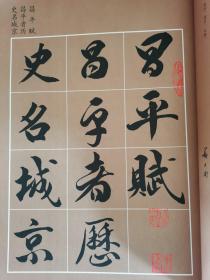 昌平賦
昌平者歷
史名城京
昌平赋
昌平者历
史名城京